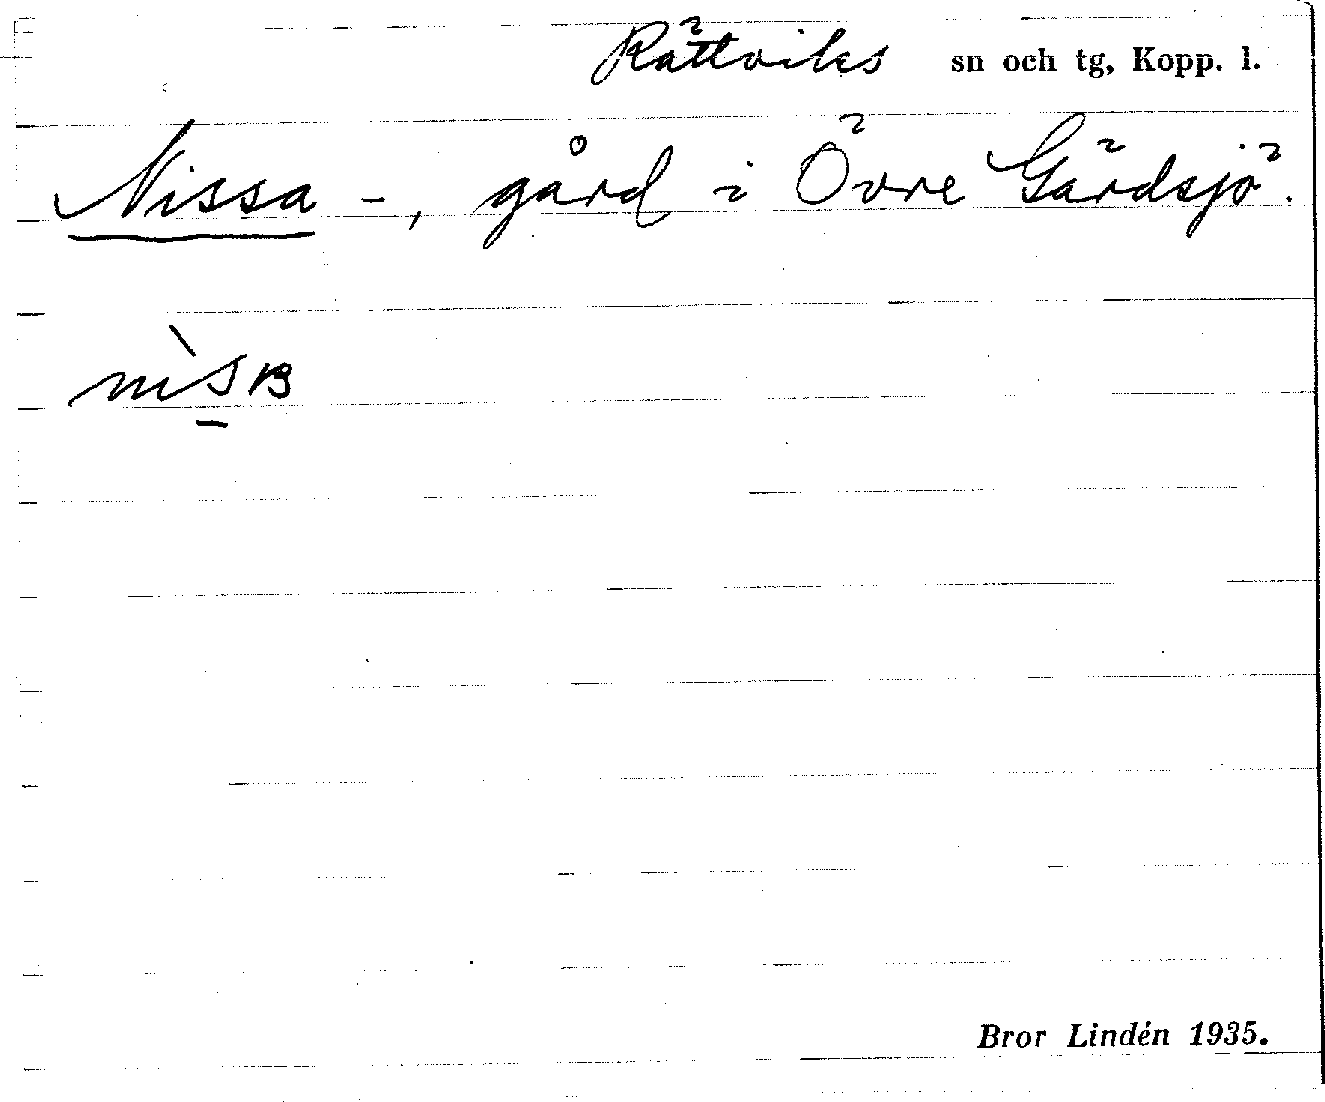 Rättviks sn och tg, Kopp. l.
Nissa -, gård i Övre Gärdsjö.
Bror Lindén 1935.